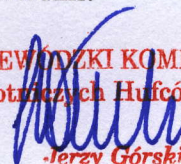 EWÓDZKI KOM
otniczych Hufcó
Jerzy Górski